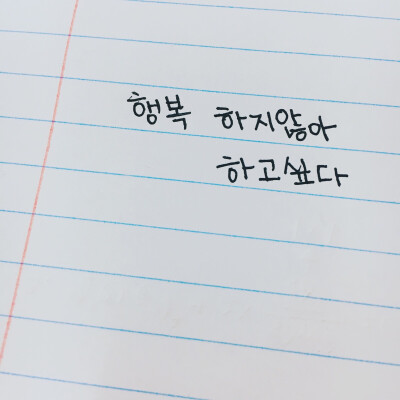 행복 하지않아
하고싶다